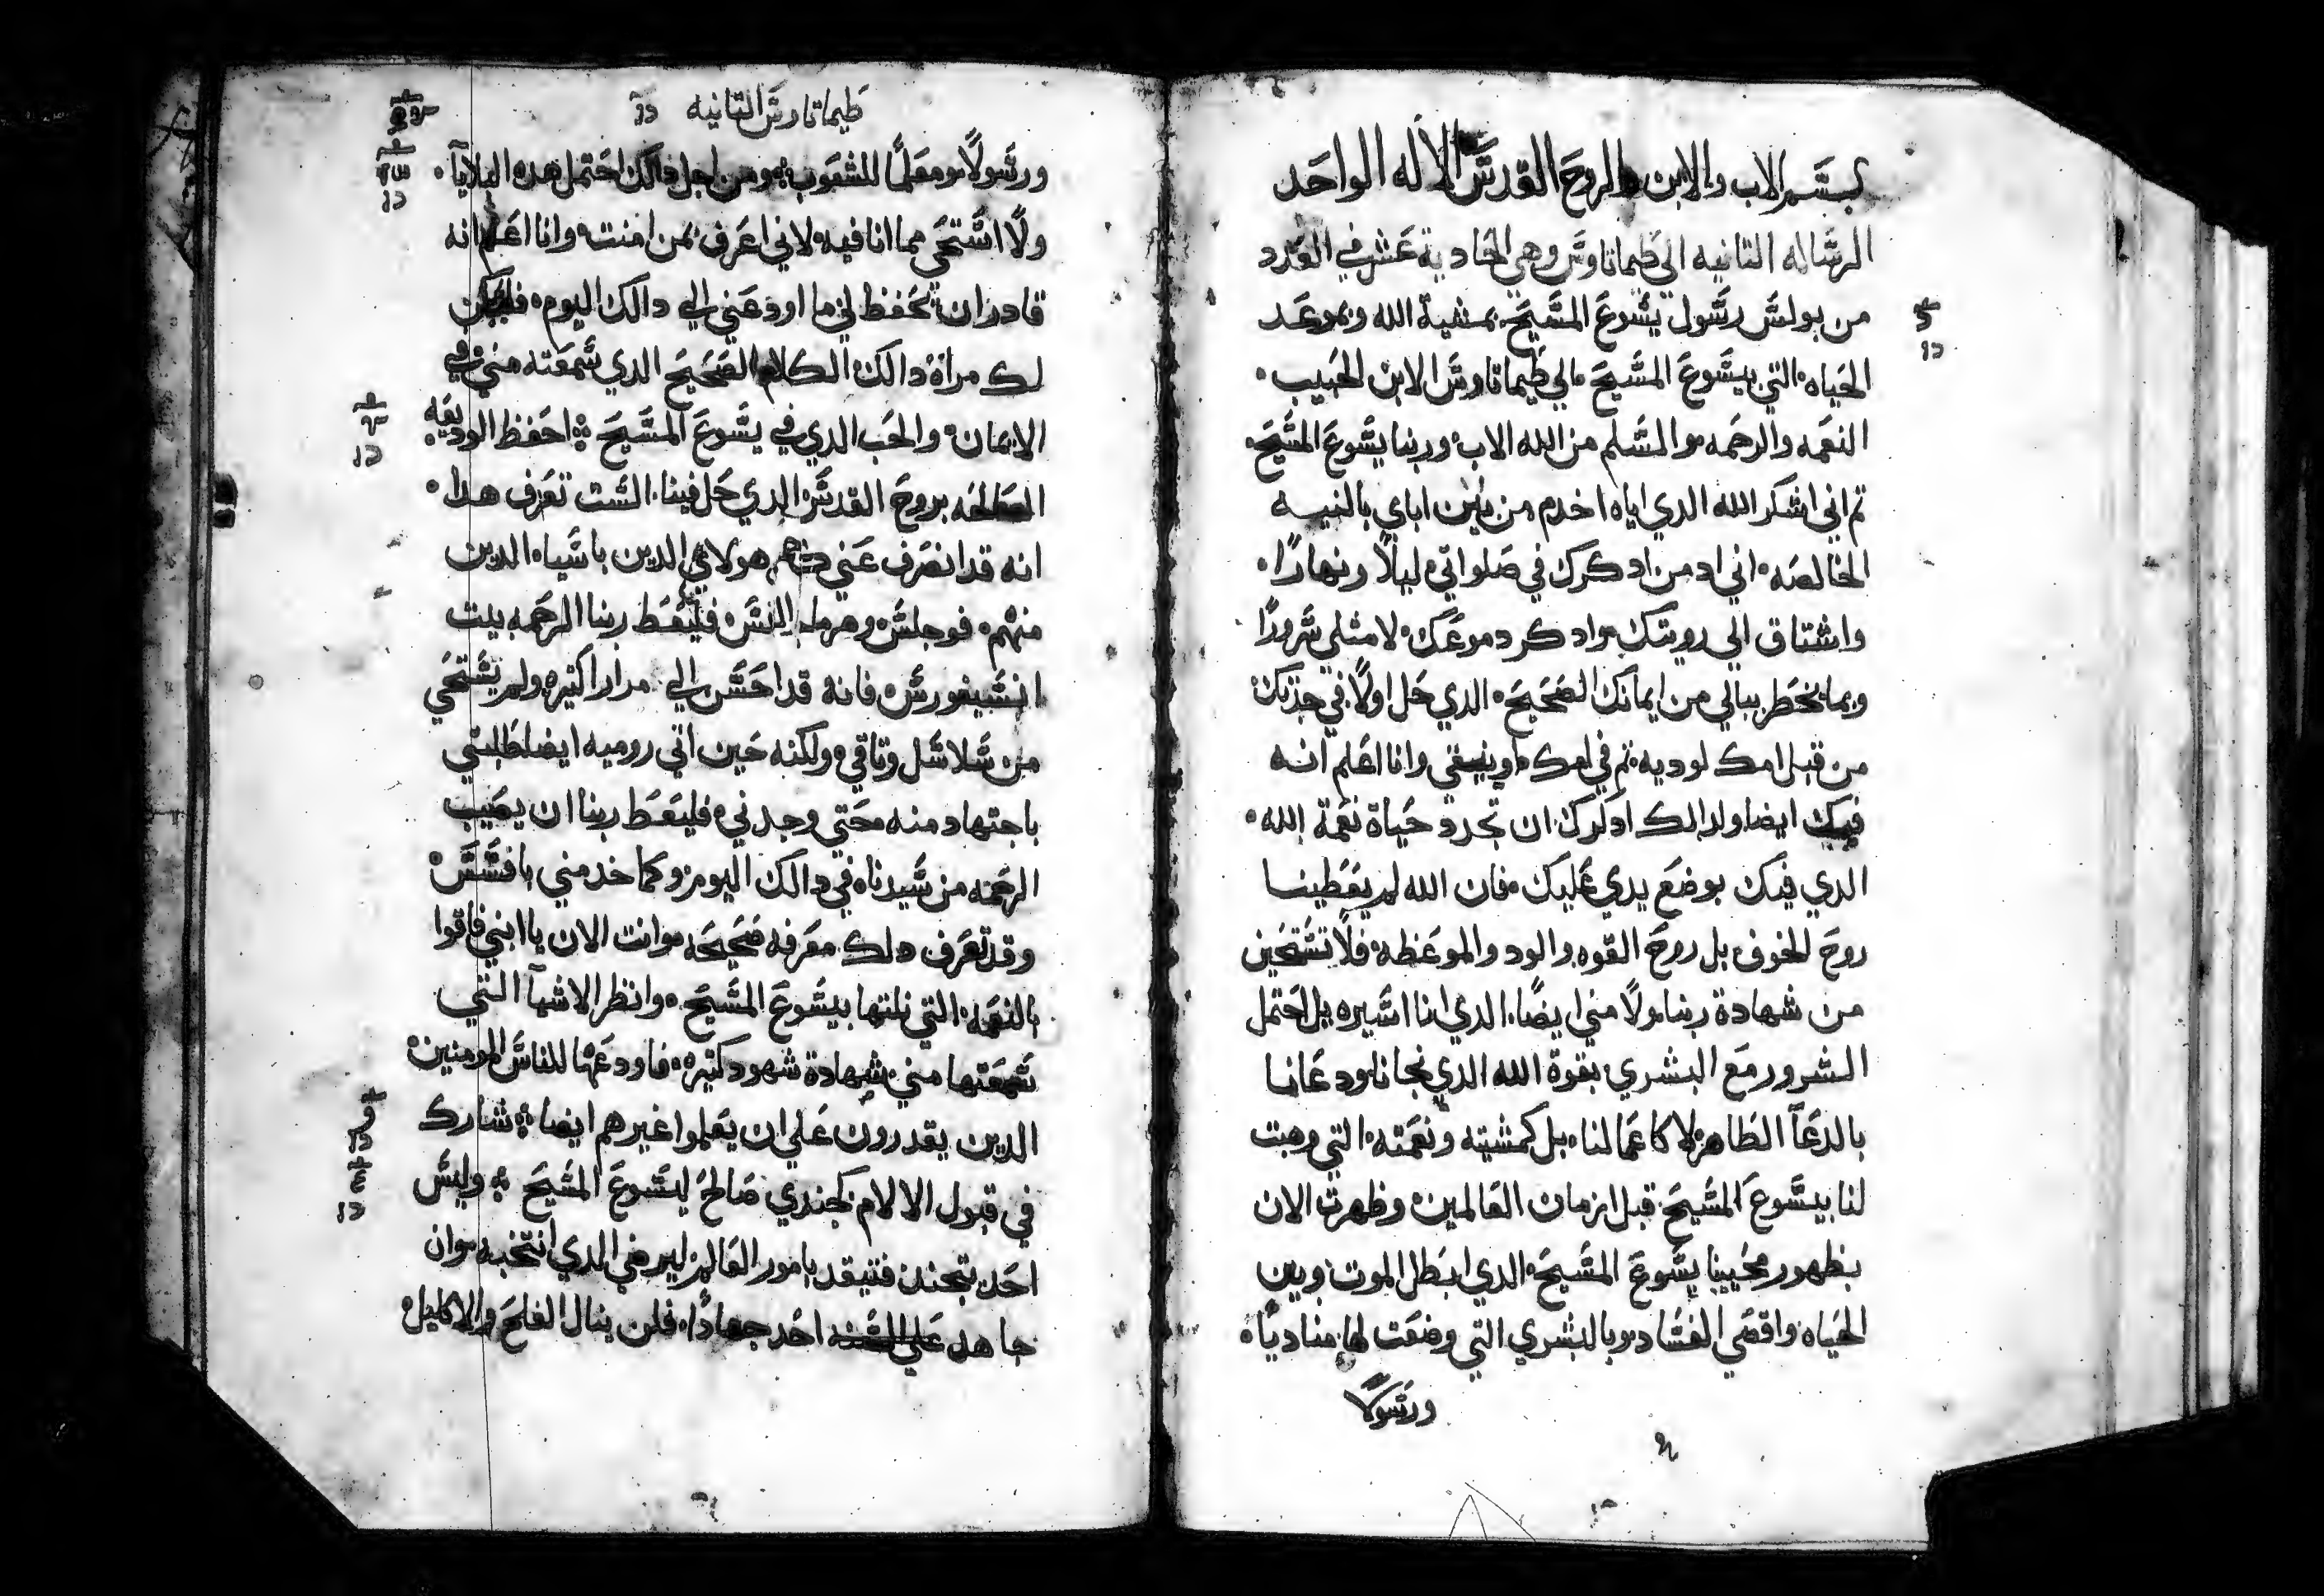 بسم الاب والابن والروح القدس الاله الواحد
الرساله التانيه الي طيماتاوس وهي الحادية عشر في العدد
من بولس رسول يسوع المسيح بمشية الله وبموعد
الحياه التي بيسوع المسيح الي طيماتاوس الابن الحبيب
النعمه والرحمه والسلم من الله الاب وربنا يسوع المسيح
تم اني اشكر الله الدي اياه اخدم من اباي بالنيه
الخالصه اني ادمن ادكرك في صلواتي ليلًا ونهارًا
واشتاق الي رويتك وادكر دموعك لامتلي سرورًا
وبما يخطر ببالي من ايمانك الصحيح الدي حل اولًا في جدتك
من قبل امك لوديه تم في امك اونيقي وانا اعلم انه
فيك ايضا ولدالك ادكرك ان تجدد حياة نعمة الله
الدي فيك بوضع يدي عليك فان الله لم يعطينا
روح الخوف بل روح القوه والود والموعظه فلا تستحين
من شهادة ربنا ولا مني ايضًا الدي انا اسيره بل احتمل
الشرور مع البشري بقوة الله الدي نجانا ودعانا
بالدعآ الطاهر لا كاعمالنا بل كمشيته ونعمته التي وهبت
لنا بيسوع المسيح قبل ازمان العالمين وظهرت الان
بظهور محيينا يسوع المسيح الدي ابطل الموت وبين
الحياه واقصي الفساد وبالبشري التي وضعت لها مناديًا
ورسولًا
طيماتاوس التانيه
ورسولًا ومعلمًا للشعوب ومن اجل دالك احتمل هده البلايآ
ولا استحي مما انا فيه لاني اعرف بمن امنت وانا اعلم انه
قادر ان يحفظ لي ما اودعني الي دالك اليوم فليكن
لك مراة دالك الكلام الصحيح الدي سمعته مني في
الايمان والحب الدي في يسوع المسيح احفظ الوديعه
الصالحه بروح القدس الدي حل فينا الست تعرف هدا
انه قد انصرف عني هولاي الدين باسياه الدين
منهم فوجلس وهرماجانس فليعط ربنا الرحمه بيت
انسيفورس فانه قد احسن الي مرارا كتيره ولم يستحي
من سلاسل وتاقي ولكنه حين اتي روميه ايضا طلبني
باجتهاد منه حتي وجدني فليعط ربنا ان يصيب
الرحمه من سيدنا في دالك اليوم وكما خدمني بافسس
وقد تعرف دلك معرفه صحيحه وانت الان يا ابني فاقوا
بالنعمه التي نلتها بيسوع المسيح وانظر الاشيآ التي
سمعتها مني بشهادة شهود كتيره فاودعها للناس المومنين
الدين يقدرون علي ان يعلموا غيرهم ايضا شارك
في قبول الالام كجندي صالح ليسوع المسيح وليس
احد يتجند فتيقد بامور العالم ليرضي الدي انتخبه وان
جاهد احد جهادًا فلن ينال الفلح والاكليل